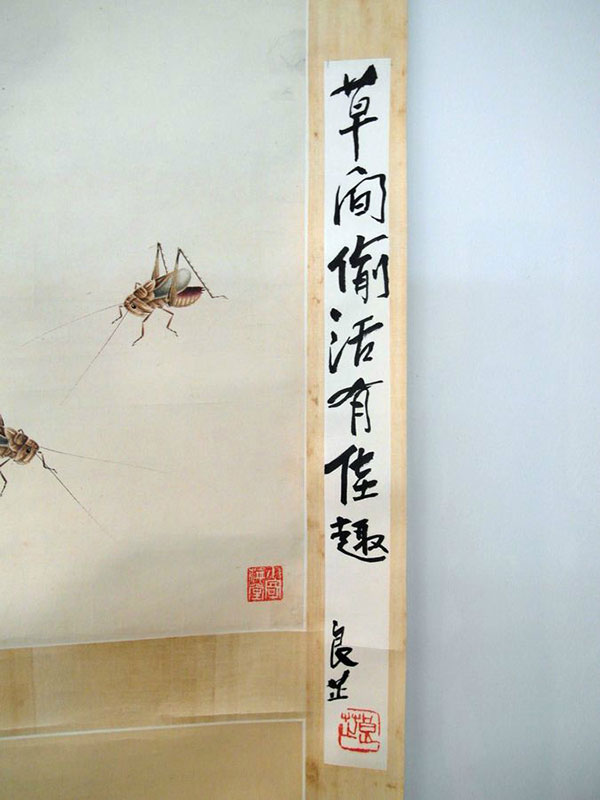 草间偷活有佳趣
良芷